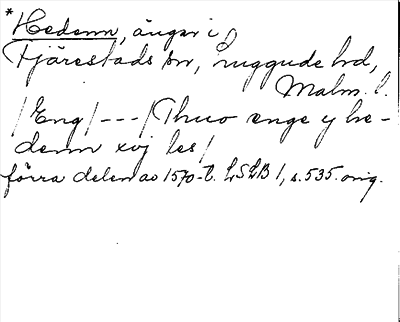 *Hedenn, ängar i
Fjärestads sn, Luggude hd,
Malm. l.
/Eng/---/Thuo enge y he-
denn xvj les/
förra delen av 1570-t. LSLB 1, s. 535. orig.